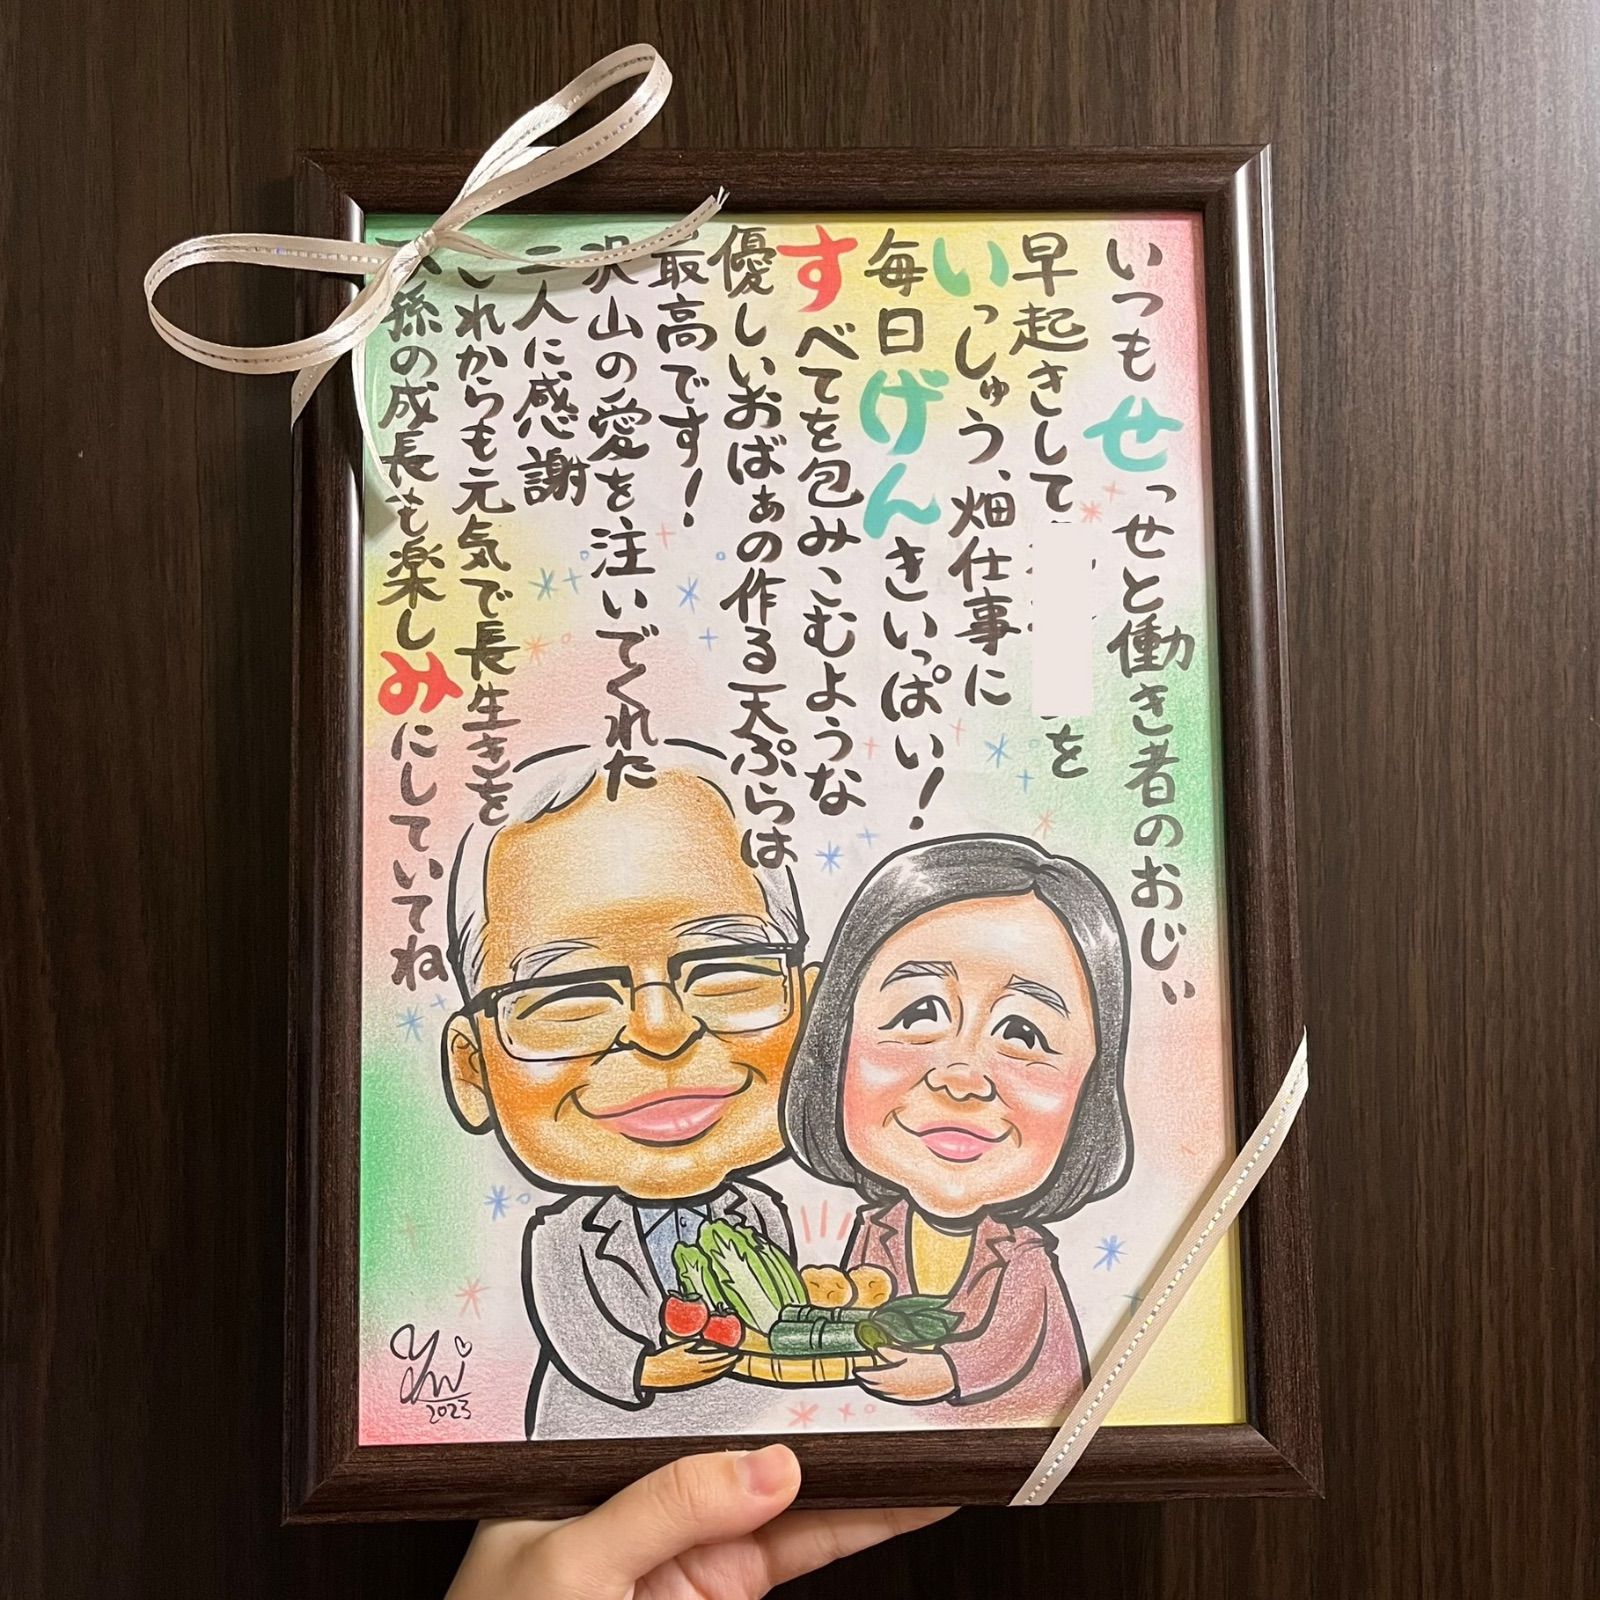 いつもせっせと働き者のおじぃ
早起きして
を
いっしゅう、畑仕事に
毎日げんきいっぱい！
すべてを包みこむような
優しいおばぁの作る天ぷらは
最高です！
沢山の愛を注いでくれた
二人に感謝
これからも元気で長生きを
孫の成長も楽しみにしていてね
2023